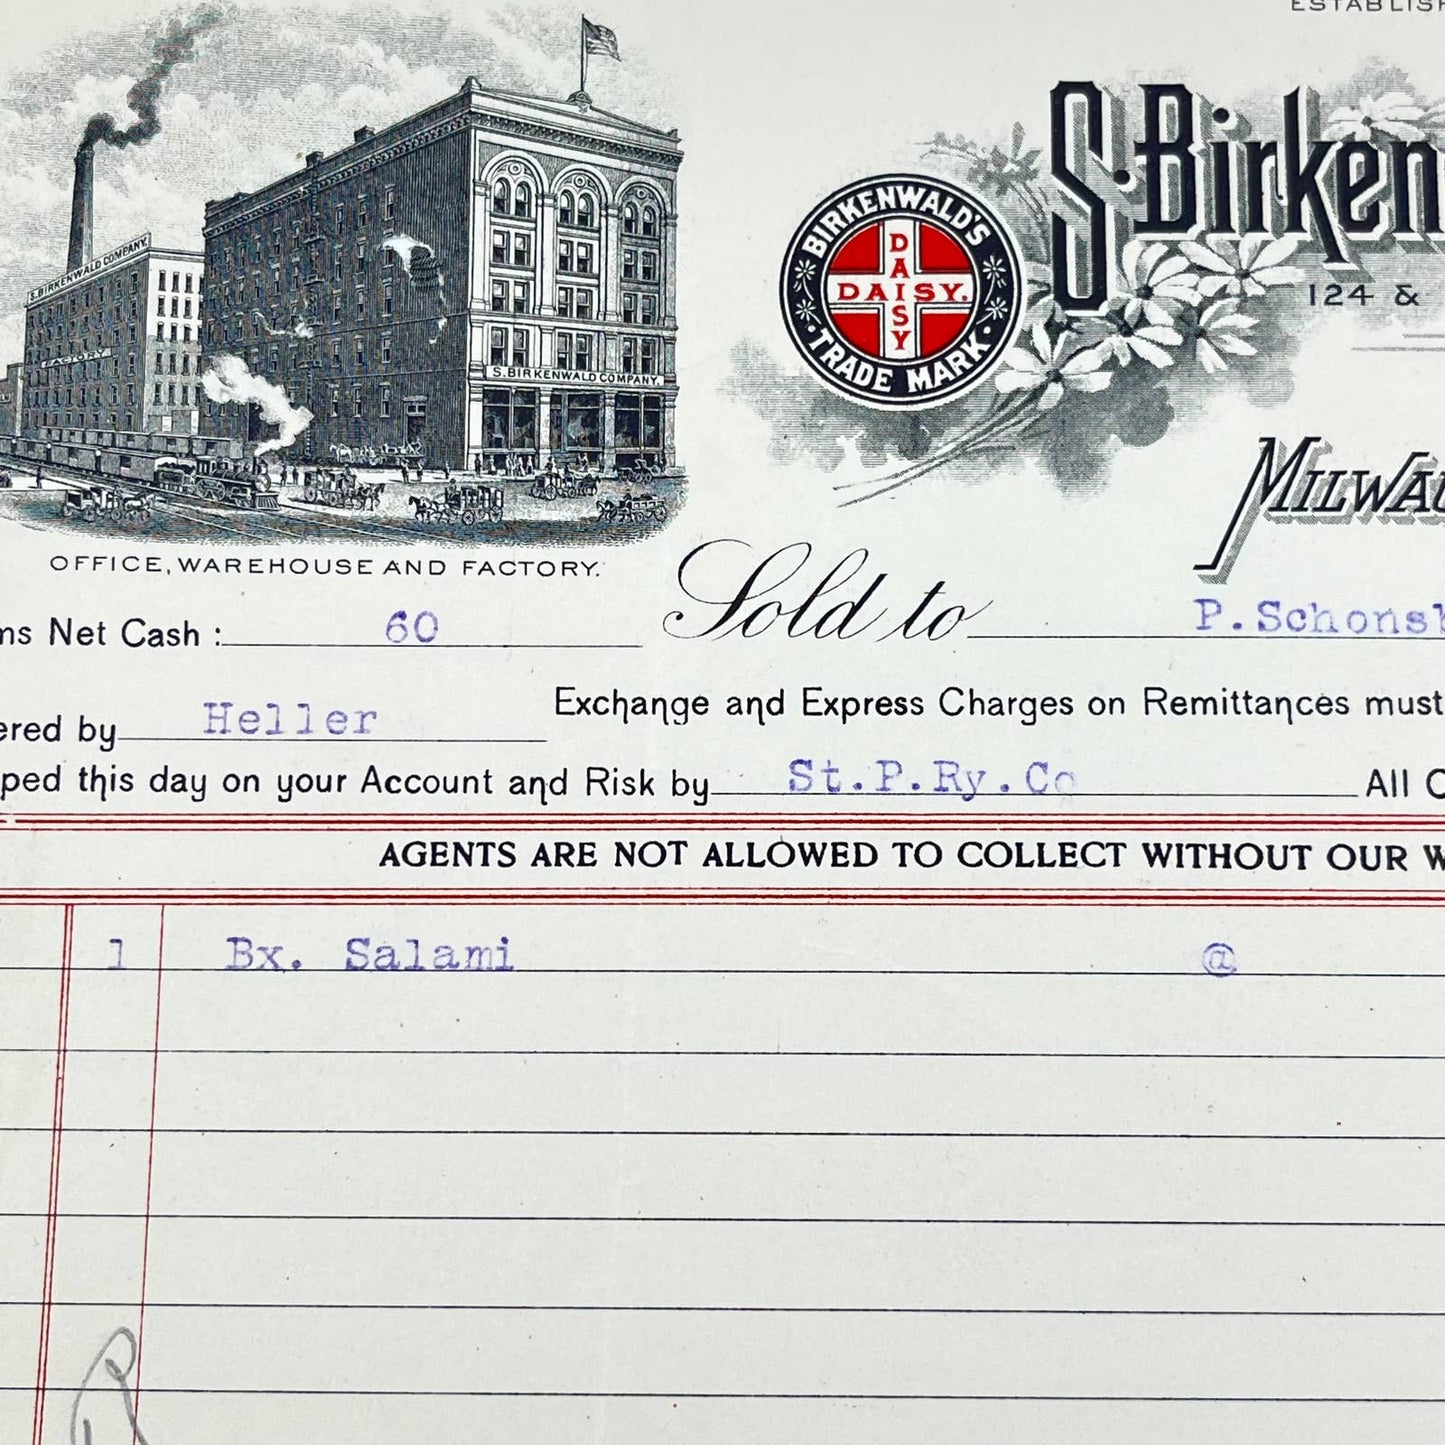 ESTABLIS
S. BIRKENWALD COMPANY.
FACTORY
S. BIRKENWALD COMPANY.
BIRKENWALD'S
DAISY
DAISY.
TRADE MARK
S. Birken
124 &
MILWAU
OFFICE, WAREHOUSE AND FACTORY.
ms Net Cash : 60
Sold to P. Schonsk
ered by Heller
Exchange and Express Charges on Remittances must
ped this day on your Account and Risk by St.P.Ry.Co
All C
AGENTS ARE NOT ALLOWED TO COLLECT WITHOUT OUR W
1 Bx. Salami @